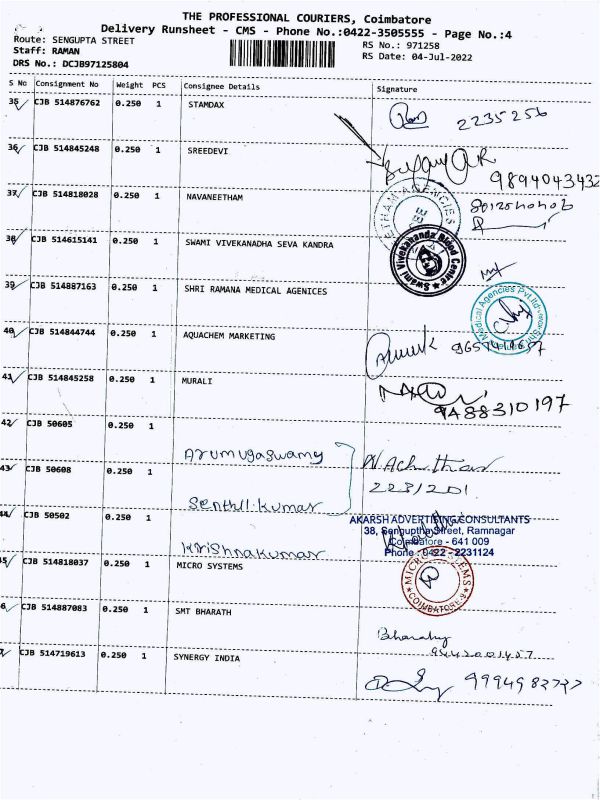 THE PROFESSIONAL COURIERS, Coimbatore
Delivery Runsheet - CMS - Phone No.:0422-3505555 - Page No.:4
Route: SENGUPTA STREET
RS No.: 971258
Staff: RAMAN
RS Date: 04-Jul-2022
DRS No.: DCJB97125804
S No Consignment No Weight PCS Consignee Details Signature
35 CJB 514876762 0.250 1 STAMDAX
2235256
36 CJB 514845248 0.250 1 SREEDEVI
9894043432
37 CJB 514818028 0.250 1 NAVANEETHAM
ETHAM AGENCIES
38 CJB 514615141 0.250 1 SWAMI VIVEKANADHA SEVA KANDRA
Swami Vivekananda Blood Centre
39 CJB 514887163 0.250 1 SHRI RAMANA MEDICAL AGENICES
Medical Agencies Pvt Ltd
40 CJB 514844744 0.250 1 AQUACHEM MARKETING
41 CJB 514845258 0.250 1 MURALI
9488310197
42 CJB 50605 0.250 1
Arumugaswamy
43 CJB 50608 0.250 1
N. Achuthan
223/201
Senthil.kumar
44 CJB 50502 0.250 1
AKARSH ADVERTISING CONSULTANTS
38, Senguptha Street, Ramnagar
Coimbatore - 641 009
Phone : 0422 - 2231124
Krishnakumar
45 CJB 514818037 0.250 1 MICRO SYSTEMS
MICRO SYSTEMS
COIMBATORE-9
6 CJB 514887083 0.250 1 SMT BHARATH
Bharathy
CJB 514719613 0.250 1 SYNERGY INDIA